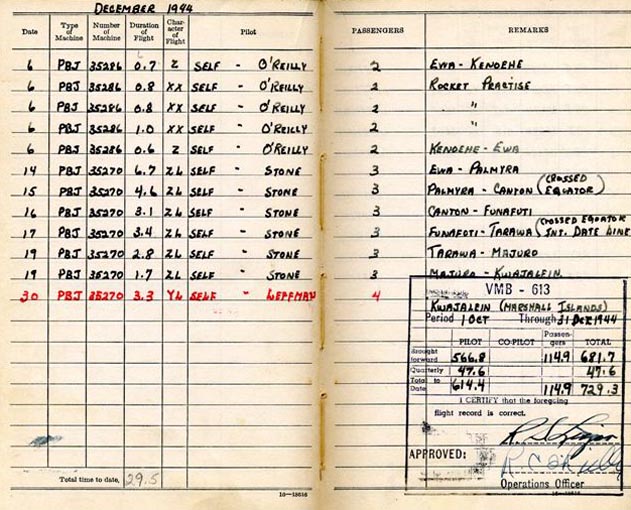 DECEMBER 1944
Date Type of Machine Number of Machine Duration of Flight Character of Flight Pilot PASSENGERS REMARKS
6 PBJ 35286 0.7 Z SELF - O'REILLY 2 EWA - KENOEHE
6 PBJ 35286 0.8 XX SELF - O'REILLY 2 ROCKET PRACTISE
6 PBJ 35286 0.8 XX SELF " O'REILLY 2 "
6 PBJ 35286 1.0 XX SELF " O'REILLY 2 "
6 PBJ 35286 0.6 Z SELF " O'REILLY 2 KENOEHE - EWA
14 PBJ 35270 6.7 ZL SELF " STONE 3 EWA - PALMYRA
15 PBJ 35270 4.6 ZL SELF " STONE 3 PALMYRA - CANTON (CROSSED EQUATOR)
16 PBJ 35270 3.1 ZL SELF " STONE 3 CANTON - FUNAFUTI
17 PBJ 35270 3.4 ZL SELF " STONE 3 FUNAFUTI - TARAWA (CROSSED EQUATOR INT. DATE LINE
19 PBJ 35270 2.8 ZL SELF " STONE 3 TARAWA - MAJURO
19 PBJ 35270 1.7 ZL SELF " STONE 3 MAJURO - KWAJALEIN
30 PBJ 35270 3.3 YL SELF " LEFFMAN 4
VMB - 613
KWAJALEIN (MARSHALL ISLANDS)
Period 1 OCT Through 31 DEC 1944
PILOT CO-PILOT Passengers TOTAL
Brought forward 566.8 114.9 681.7
Quarterly 47.6 47.6
Total to Date 614.4 114.9 729.3
I CERTIFY that the foregoing
flight record is correct.
APPROVED:
Operations Officer
Total time to date, 29.5
16-13616